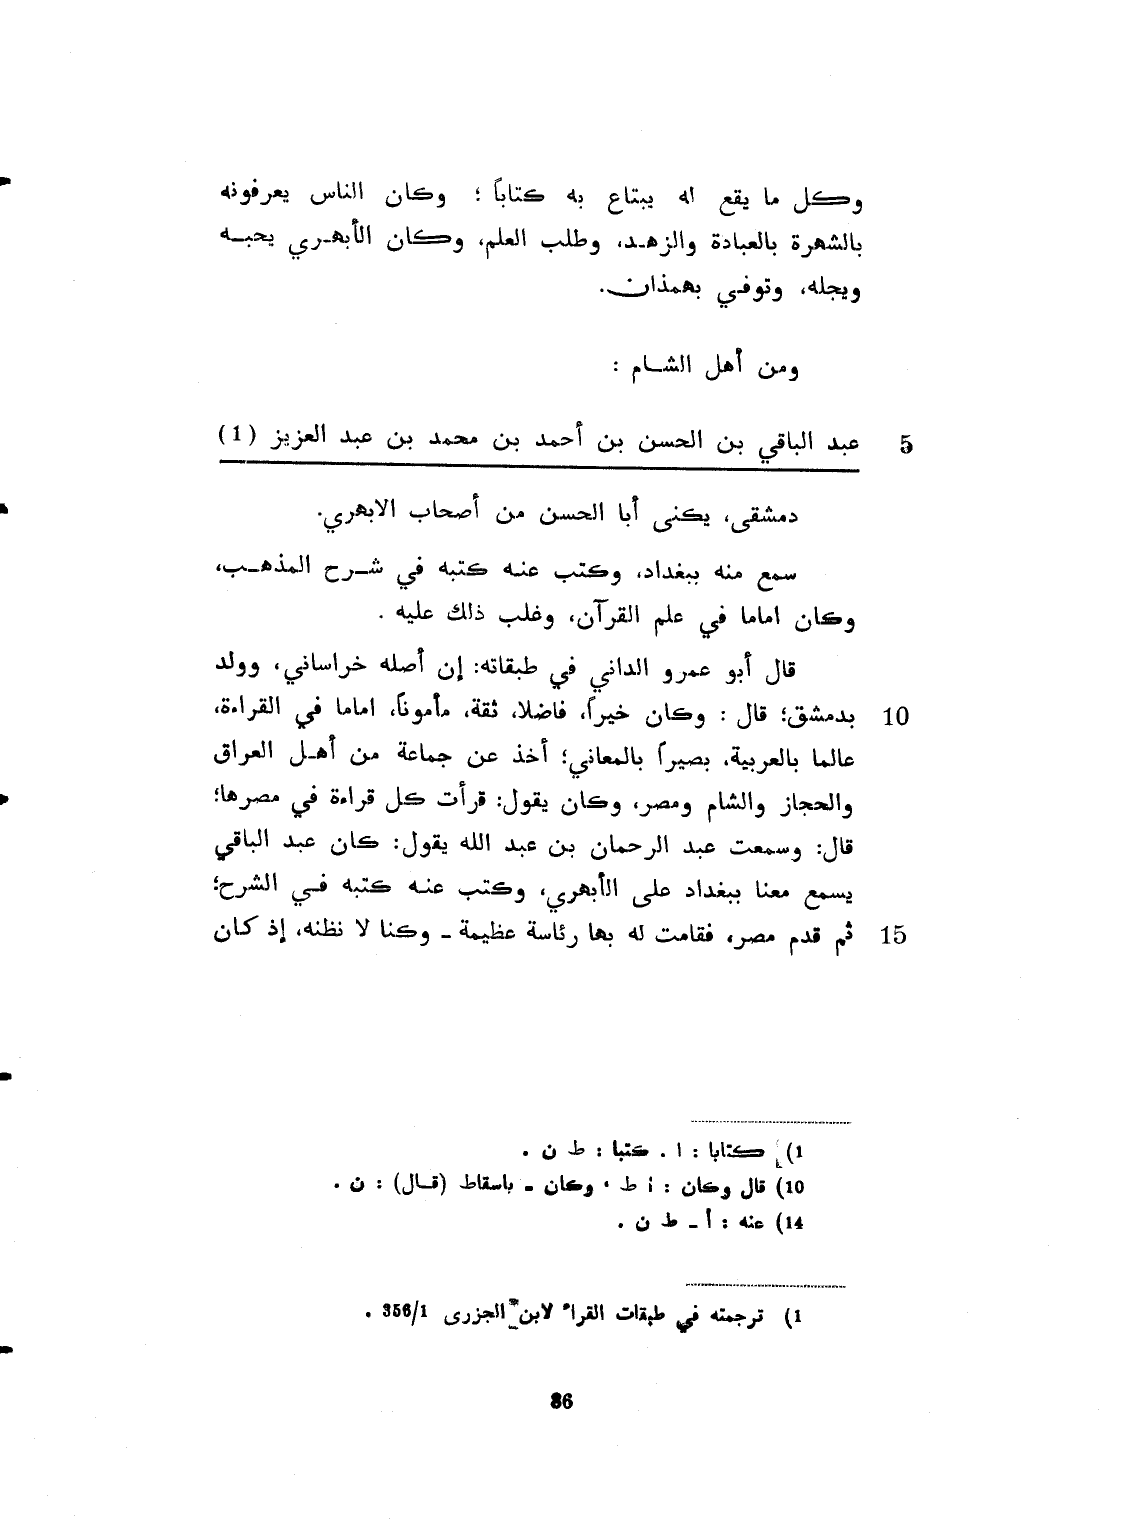 وكل ما يقع له يبتاع به كتاباً ؛ وكان الناس يعرفونه
بالشهرة بالعبادة والزهد، وطلب العلم، وكان الأبهري يحبه
ويجله، وتوفي بهمذان.
ومن أهل الشام :
5 عبد الباقي بن الحسن بن أحمد بن محمد بن عبد العزيز (1)
دمشقى، يكنى أبا الحسن من أصحاب الابهري.
سمع منه ببغداد، وكتب عنه كتبه في شرح المذهب،
وكان اماما في علم القرآن، وغلب ذلك عليه .
قال أبو عمرو الداني في طبقاته: إن أصله خراساني، وولد
10 بدمشق؛ قال : وكان خيراً، فاضلا، ثقة، مأموناً، اماما في القراءة،
عالما بالعربية، بصيراً بالمعاني؛ أخذ عن جماعة من أهل العراق
والحجاز والشام ومصر، وكان يقول: قرأت كل قراءة في مصرها؛
قال: وسمعت عبد الرحمان بن عبد الله يقول: كان عبد الباقي
يسمع معنا ببغداد على الأبهري، وكتب عنه كتبه في الشرح؛
15 ثم قدم مصر، فقامت له بها رئاسة عظيمة - وكنا لا نظنه، إذ كان
1) كتابا : ا . كتبا : ط ن .
10) قال وكان : أ ط ، وكان - باسقاط (قال) : ن .
14) عنه : أ - ط ن .
1) ترجمته في طبقات القراء لابن الجزرى 356/1 .
86